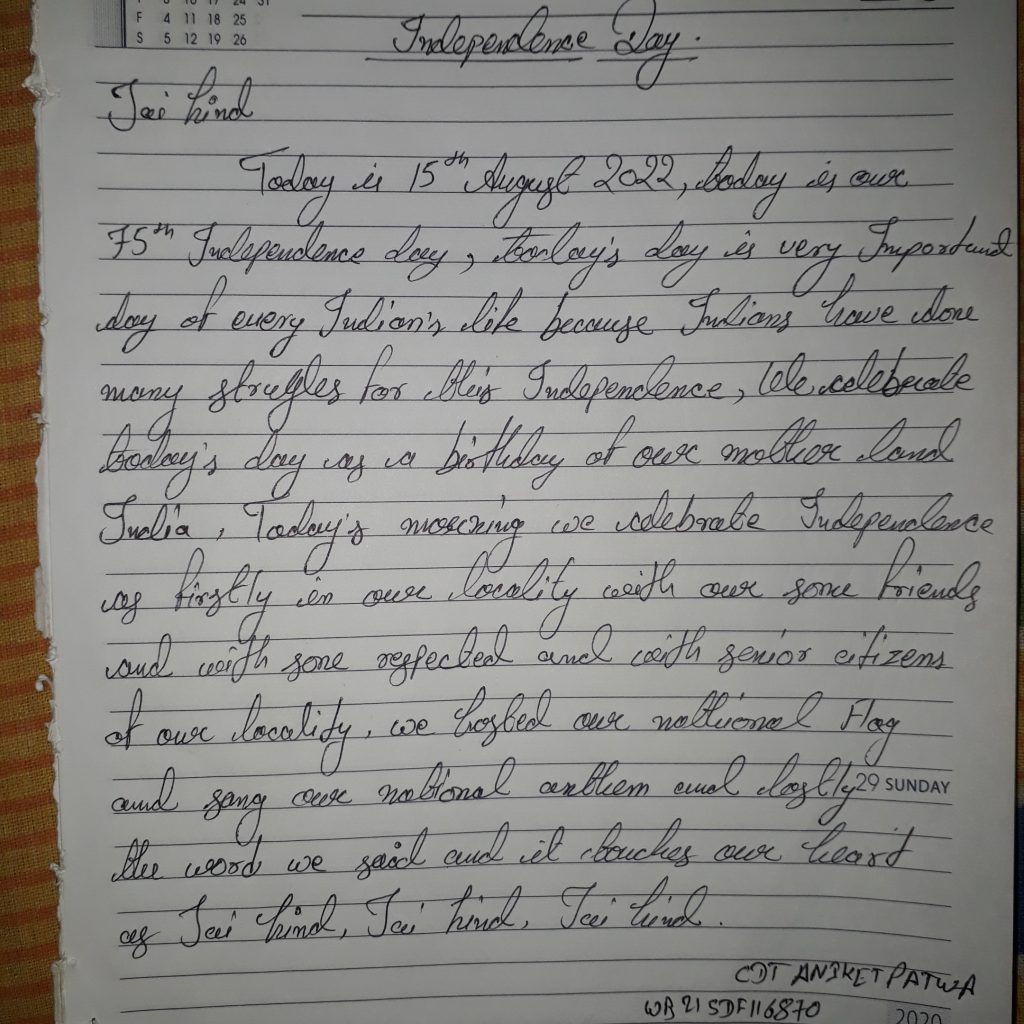 F 4 11 18 25
S 5 12 19 26
Independence Day.
Jai hind
Today is 15th August 2022, today is our
75th Independence day, today's day is very Important
day of every Indian's life because Indians have done
many strugles for this Independence, We celebrate
today's day as a birthday of our mother land
India, Today's morning we celebrate Independence
as firstly in our locality with our some friends
and with some respected and with senior citizens
of our locality, we hosted our national Flag
and sang our national anthem and lastly 29 SUNDAY
the word we said and it touches our heart
as Jai hind, Jai hind, Jai hind.
CDT ANIKET PATWA
WB21SDF116870
2020